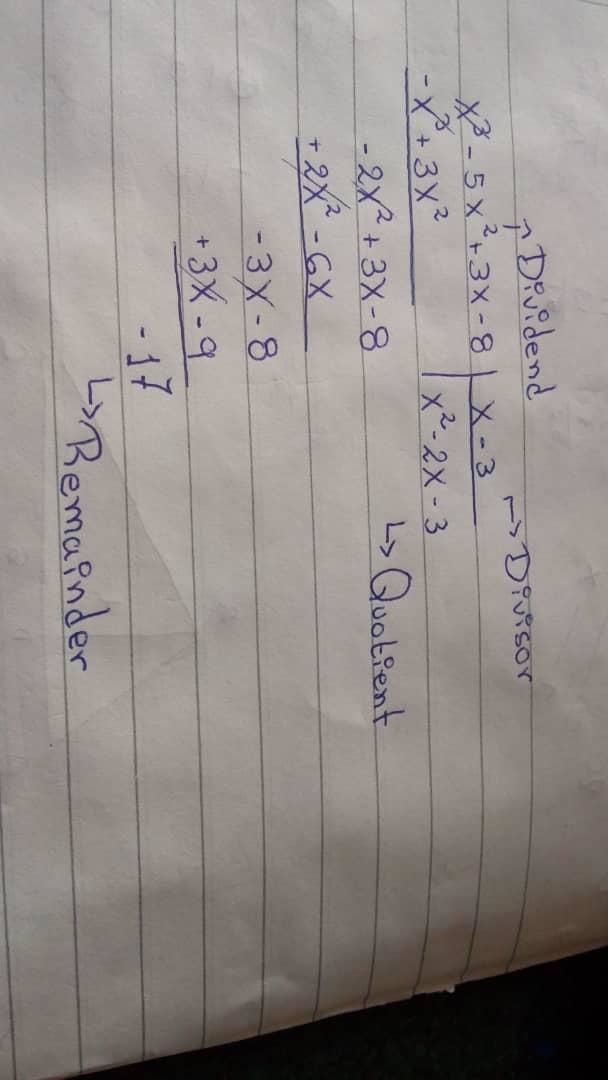 Dividend
x³ - 5x² + 3x - 8 | x - 3 → Divisor
-x³ + 3x² x² - 2x - 3
-2x² + 3x - 8 ↳ Quotient
+ 2x² - 6x
-3x - 8
+3x - 9
-17
↳ Remainder